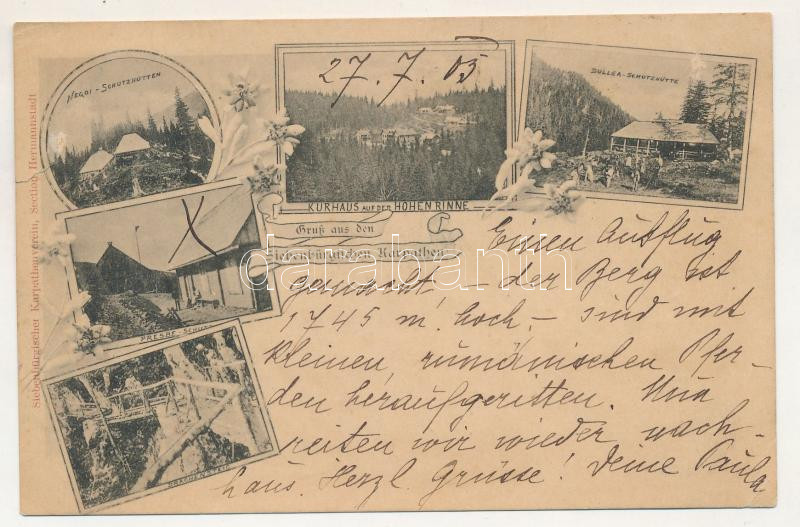 27.7.05
NEGOI - SCHUTZHÜTTEN
KURHAUS AUF DER HOHEN RINNE
BULLEA-SCHUTZHÜTTE
Gruß aus den
Siebenbürgischen Karpathen
PRESBE-SCHUTZ
DRACHENSTEIG
Siebenbürgischer Karpathenverein, Section Hermannstadt
darabanth
Einen Ausflug
gemacht, - der Berg ist
1745 m. hoch, - sind mit
kleinen, rumänischen Pfer-
den heraufgeritten. Nun
reiten wir wieder nach-
haus. Herzl. Grüsse! Deine Paula